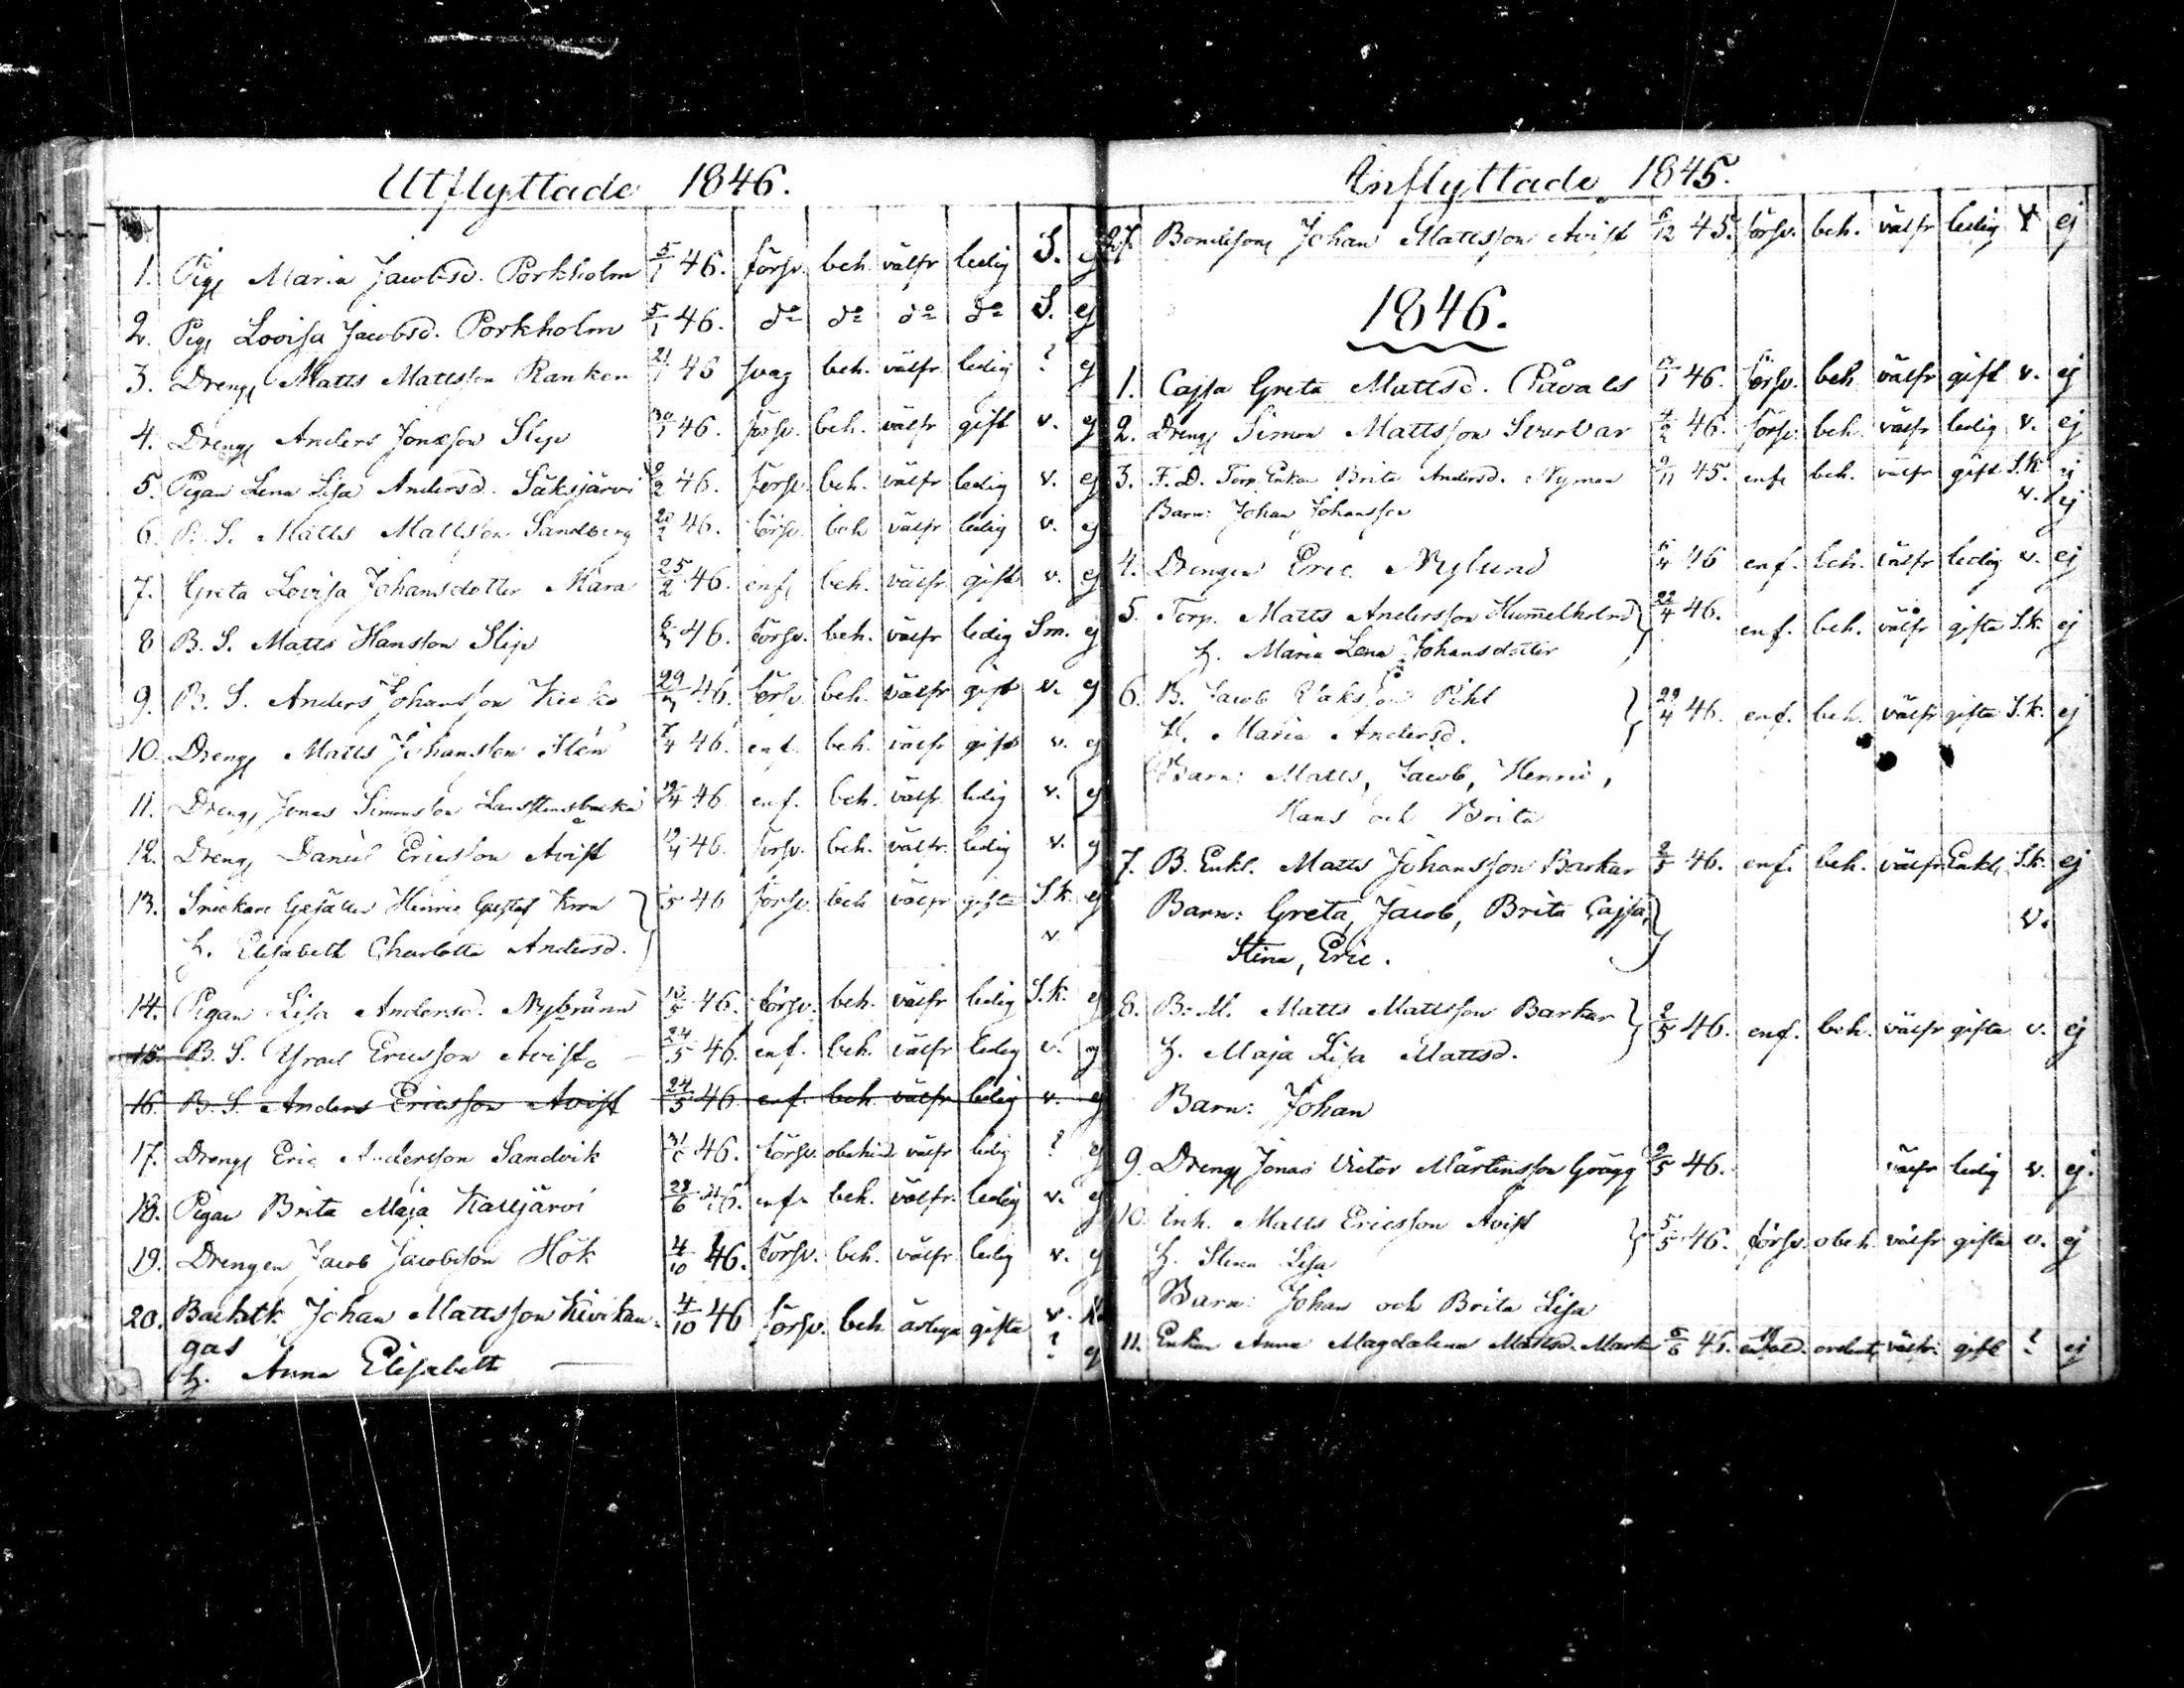 Utflyttade 1846.
1. Pig Maria Jacobsd. Porkholm 5/1 46. försv. beh. välfr ledig S. ej
2. Pig Lovisa Jacobsd. Porkholm 5/1 46. do do do do S. ej
3. Dreng Matts Mattsson Ranken 21/1 46 svag beh. välfr. ledig ? ej
4. Dreng Anders Jonasson Slip 30/1 46. försv. beh. välfr gift v. ej
5. Pigan Lena Lisa Andersd. Säksjärvi /2 46. försv. beh. välfr ledig v. ej
6. Matts Mattsson Sandberg 20/2 46. försv. beh välfr ledig v. ej
7. Greta Lovisa Johansdotter Mara 25/2 46. enf. beh. välfr. gift v. ej
8 B. S. Matts Hansson Slip 46. försv. beh. välfr ledig Sm. ej
9. B. S. Anders Johansson 29/ 46. försv. beh. välfr gift v. ej
10. Dreng Matts Johansson 7/4 46. enf. beh. välfr gift v. ej
11. Dreng Jonas Simonsson /4 46 enf. beh. välfr. ledig v. ej
12. Dreng Daniel Ericsson Avist 19/4 46. försv. beh. välfr. ledig v. ej
13. Snickare Gesällen Henric Gustaf /5 46 försv. beh välfr gifta S.k. ej
H. Elisabeth Charlotta Andersd. v.
14. Pigan Lisa Andersd. Nybränn /5 46. försv. beh. välfr ledig S.k. ej
15. B. S. Ysrael Ericsson Avist 24/5 46. enf. beh. välfr ledig v. ej
16. B. S. Anders Ericsson Avist 24/5 46. enf. beh. välfr ledig v. ej
17. Dreng Eric Andersson Sandvik 31/ 46. försv. obehind välfr ledig ? ej
18. Pigan Brita Maja Kaitjärvi 28/6 46. enf. beh. välfr. ledig v. ej
19. Drengen Jacob Jacobsson Hök 4/10 46. försv. beh. välfr. ledig v. ej
20. Johan Mattsson Kivikan- 4/10 46 försv. beh ärliga gifta v.
gas ?
H. Anna Elisabeth ej
Inflyttade 1845.
27. Bondeson Johan Mattsson Avist 6/12 45. försv. beh. välfr ledig v ej
1846.
1. Cajsa Greta Mattsd. Påvals /1 46. försv. beh välfr gift v. ej
2. Dreng Simon Mattsson 4/2 46. försv. beh. välfr ledig v. ej
3. F. D. Torp. Enkan Brita Andersd. Nyman 9/11 45. enf. beh. välfr gift S.k. ej
Barn: Johan Johansson v. ej
4. Drengen Eric Nylund 6/4 46 enf. beh. välfr ledig v. ej
5. Torp. Matts Andersson Hummelholm 22/4 46. enf. beh. välfr gifta S.k. ej
H. Maria Lena Johansdotter
6. B. Jacob Isaksson Pihl 29/4 46. enf. beh. välfr gifta S.k. ej
H. Maria Andersd.
Barn: Matts, Jacob, Henric,
Hans och Brita
7. B. Enkl. Matts Johansson Barkar 2/5 46. enf. beh. välfr Enkl. S.k. ej
Barn: Greta, Jacob, Brita Cajsa, v.
Stina, Eric.
8. B: M. Matts Mattsson Barkar 2/5 46. enf. beh. välfr gifta v. ej
H. Maja Lisa Mattsd.
Barn: Johan
9. Dreng Jonas Victor Mårtensson Grägg 2/5 46. välfr ledig v. ej.
10. Inh. Matts Ericsson Avist 5/5 46. försv. obeh. välfr gifta v. ej
H. Stina Lisa
Barn: Johan och Brita Lisa
11. Enkan Anna Magdalena Mattsd. 6/6 45. välfr. gift ? ej